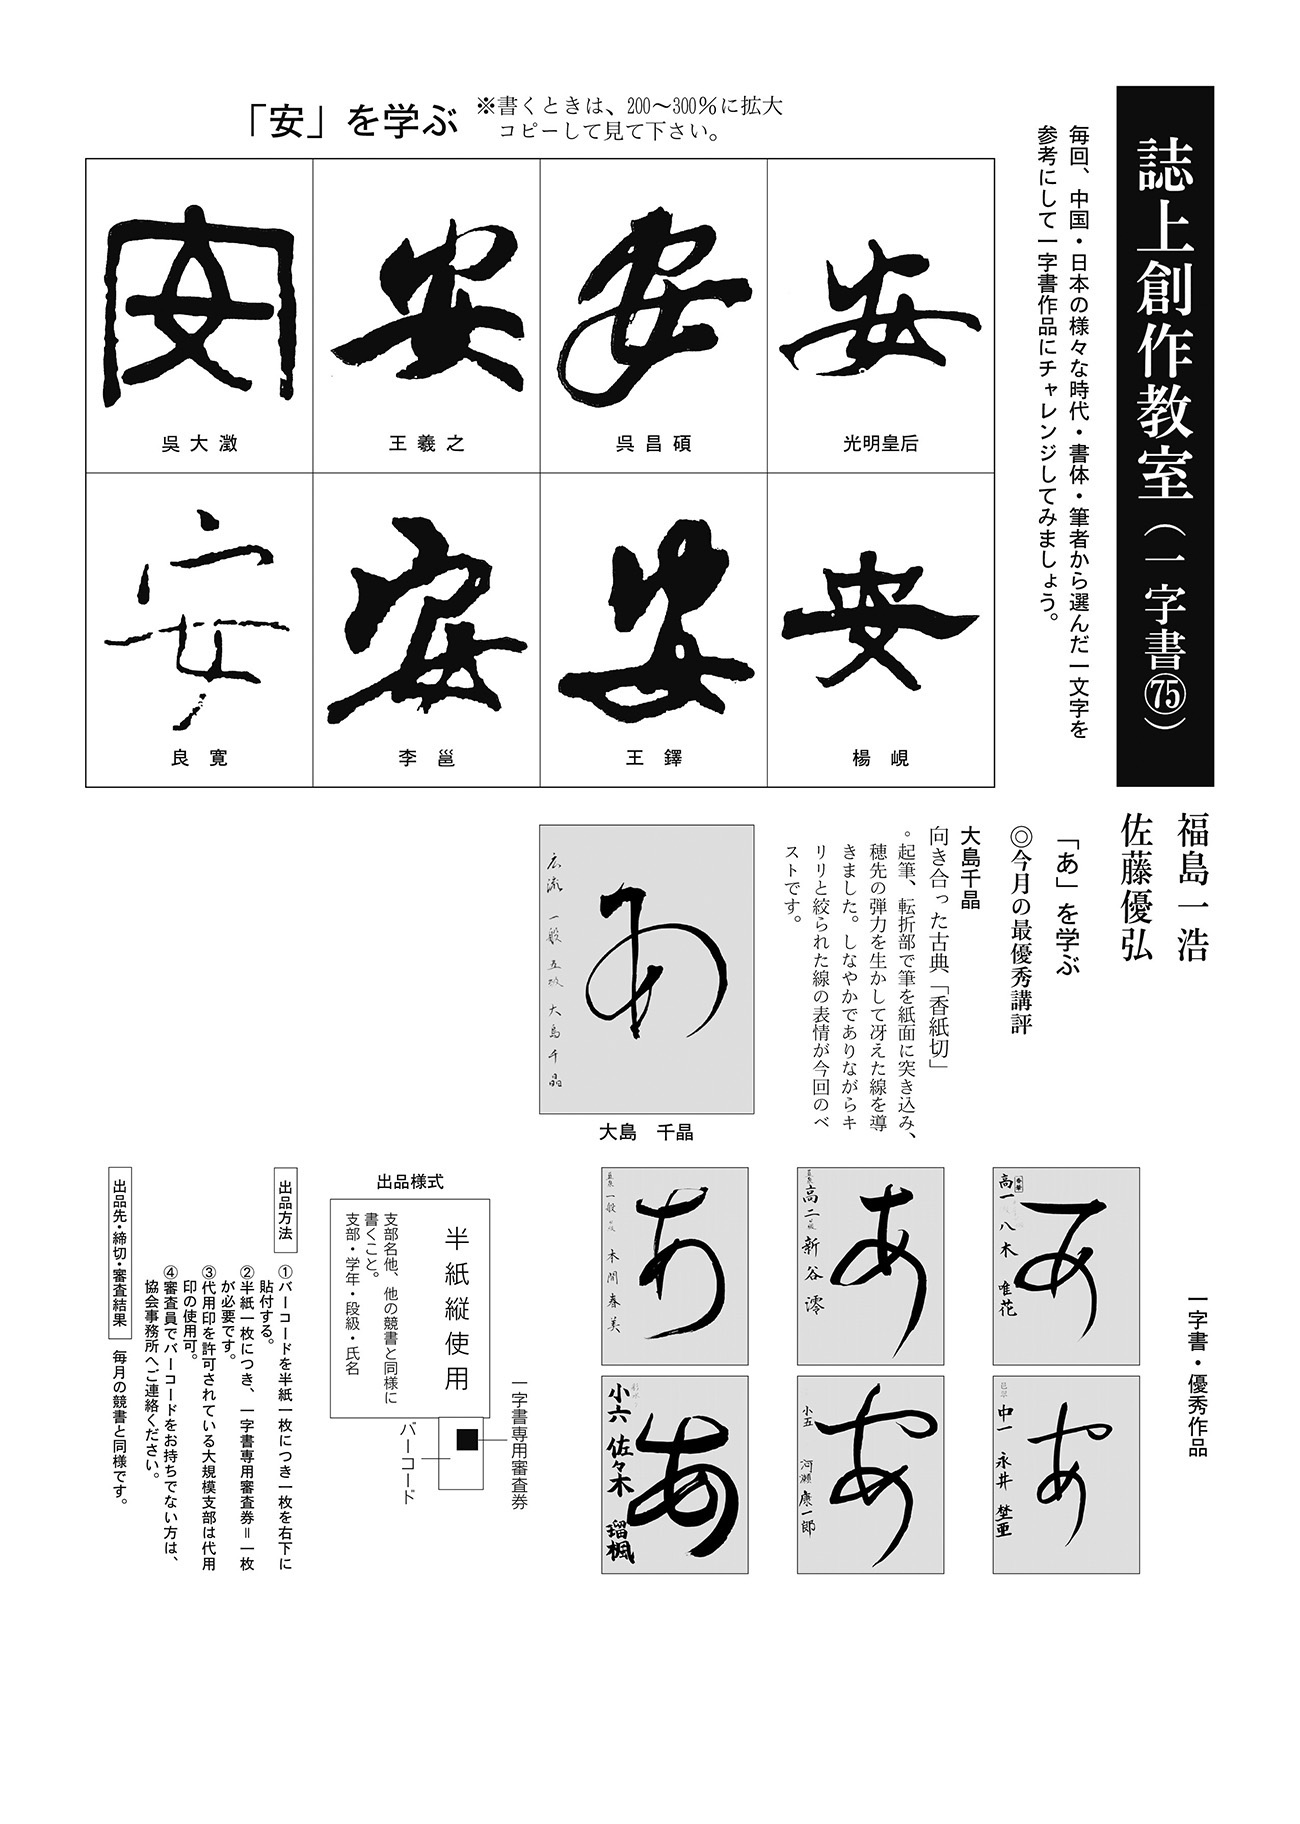 誌上創作教室（一字書㊆）
福島一浩
佐藤優弘
毎回、中国・日本の様々な時代・書体・筆者から選んだ一文字を
参考にして一字書作品にチャレンジしてみましょう。
「安」を学ぶ
※書くときは、200～300％に拡大
コピーして見て下さい。
安
光明皇后
安
呉昌碩
安
王羲之
安
呉大澂
安
楊峴
安
王鐸
安
李邕
安
良寛
「あ」を学ぶ
◎今月の最優秀講評
大島千晶
向き合った古典「香紙切」
。起筆、転折部で筆を紙面に突き込み、
穂先の弾力を生かして冴えた線を導
きました。しなやかでありながらキ
リリと絞られた線の表情が今回のベ
ストです。
あ
広流 一般 五段 大島千晶
大島　千晶
一字書・優秀作品
あ
高一 八木 唯花
あ
高二 新谷澪
あ
一般 本間春美
あ
中一 永井 埜亜
あ
小五 河瀬 康一郎
あ
小六 佐々木 瑠楓
出品様式
半紙縦使用
支部名他、他の競書と同様に
書くこと。
支部・学年・段級・氏名
一字書専用審査券
バーコード
出品方法
①バーコードを半紙一枚につき一枚を右下に
貼付する。
②半紙一枚につき、一字書専用審査券＝一枚
が必要です。
③代用印を許可されている大規模支部は代用
印の使用可。
④審査員でバーコードをお持ちでない方は、
協会事務所へご連絡ください。
出品先・締切・審査結果
毎月の競書と同様です。